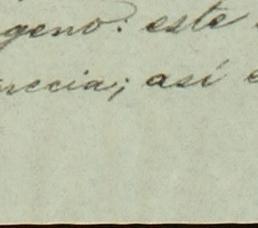 geno: este
recia; así